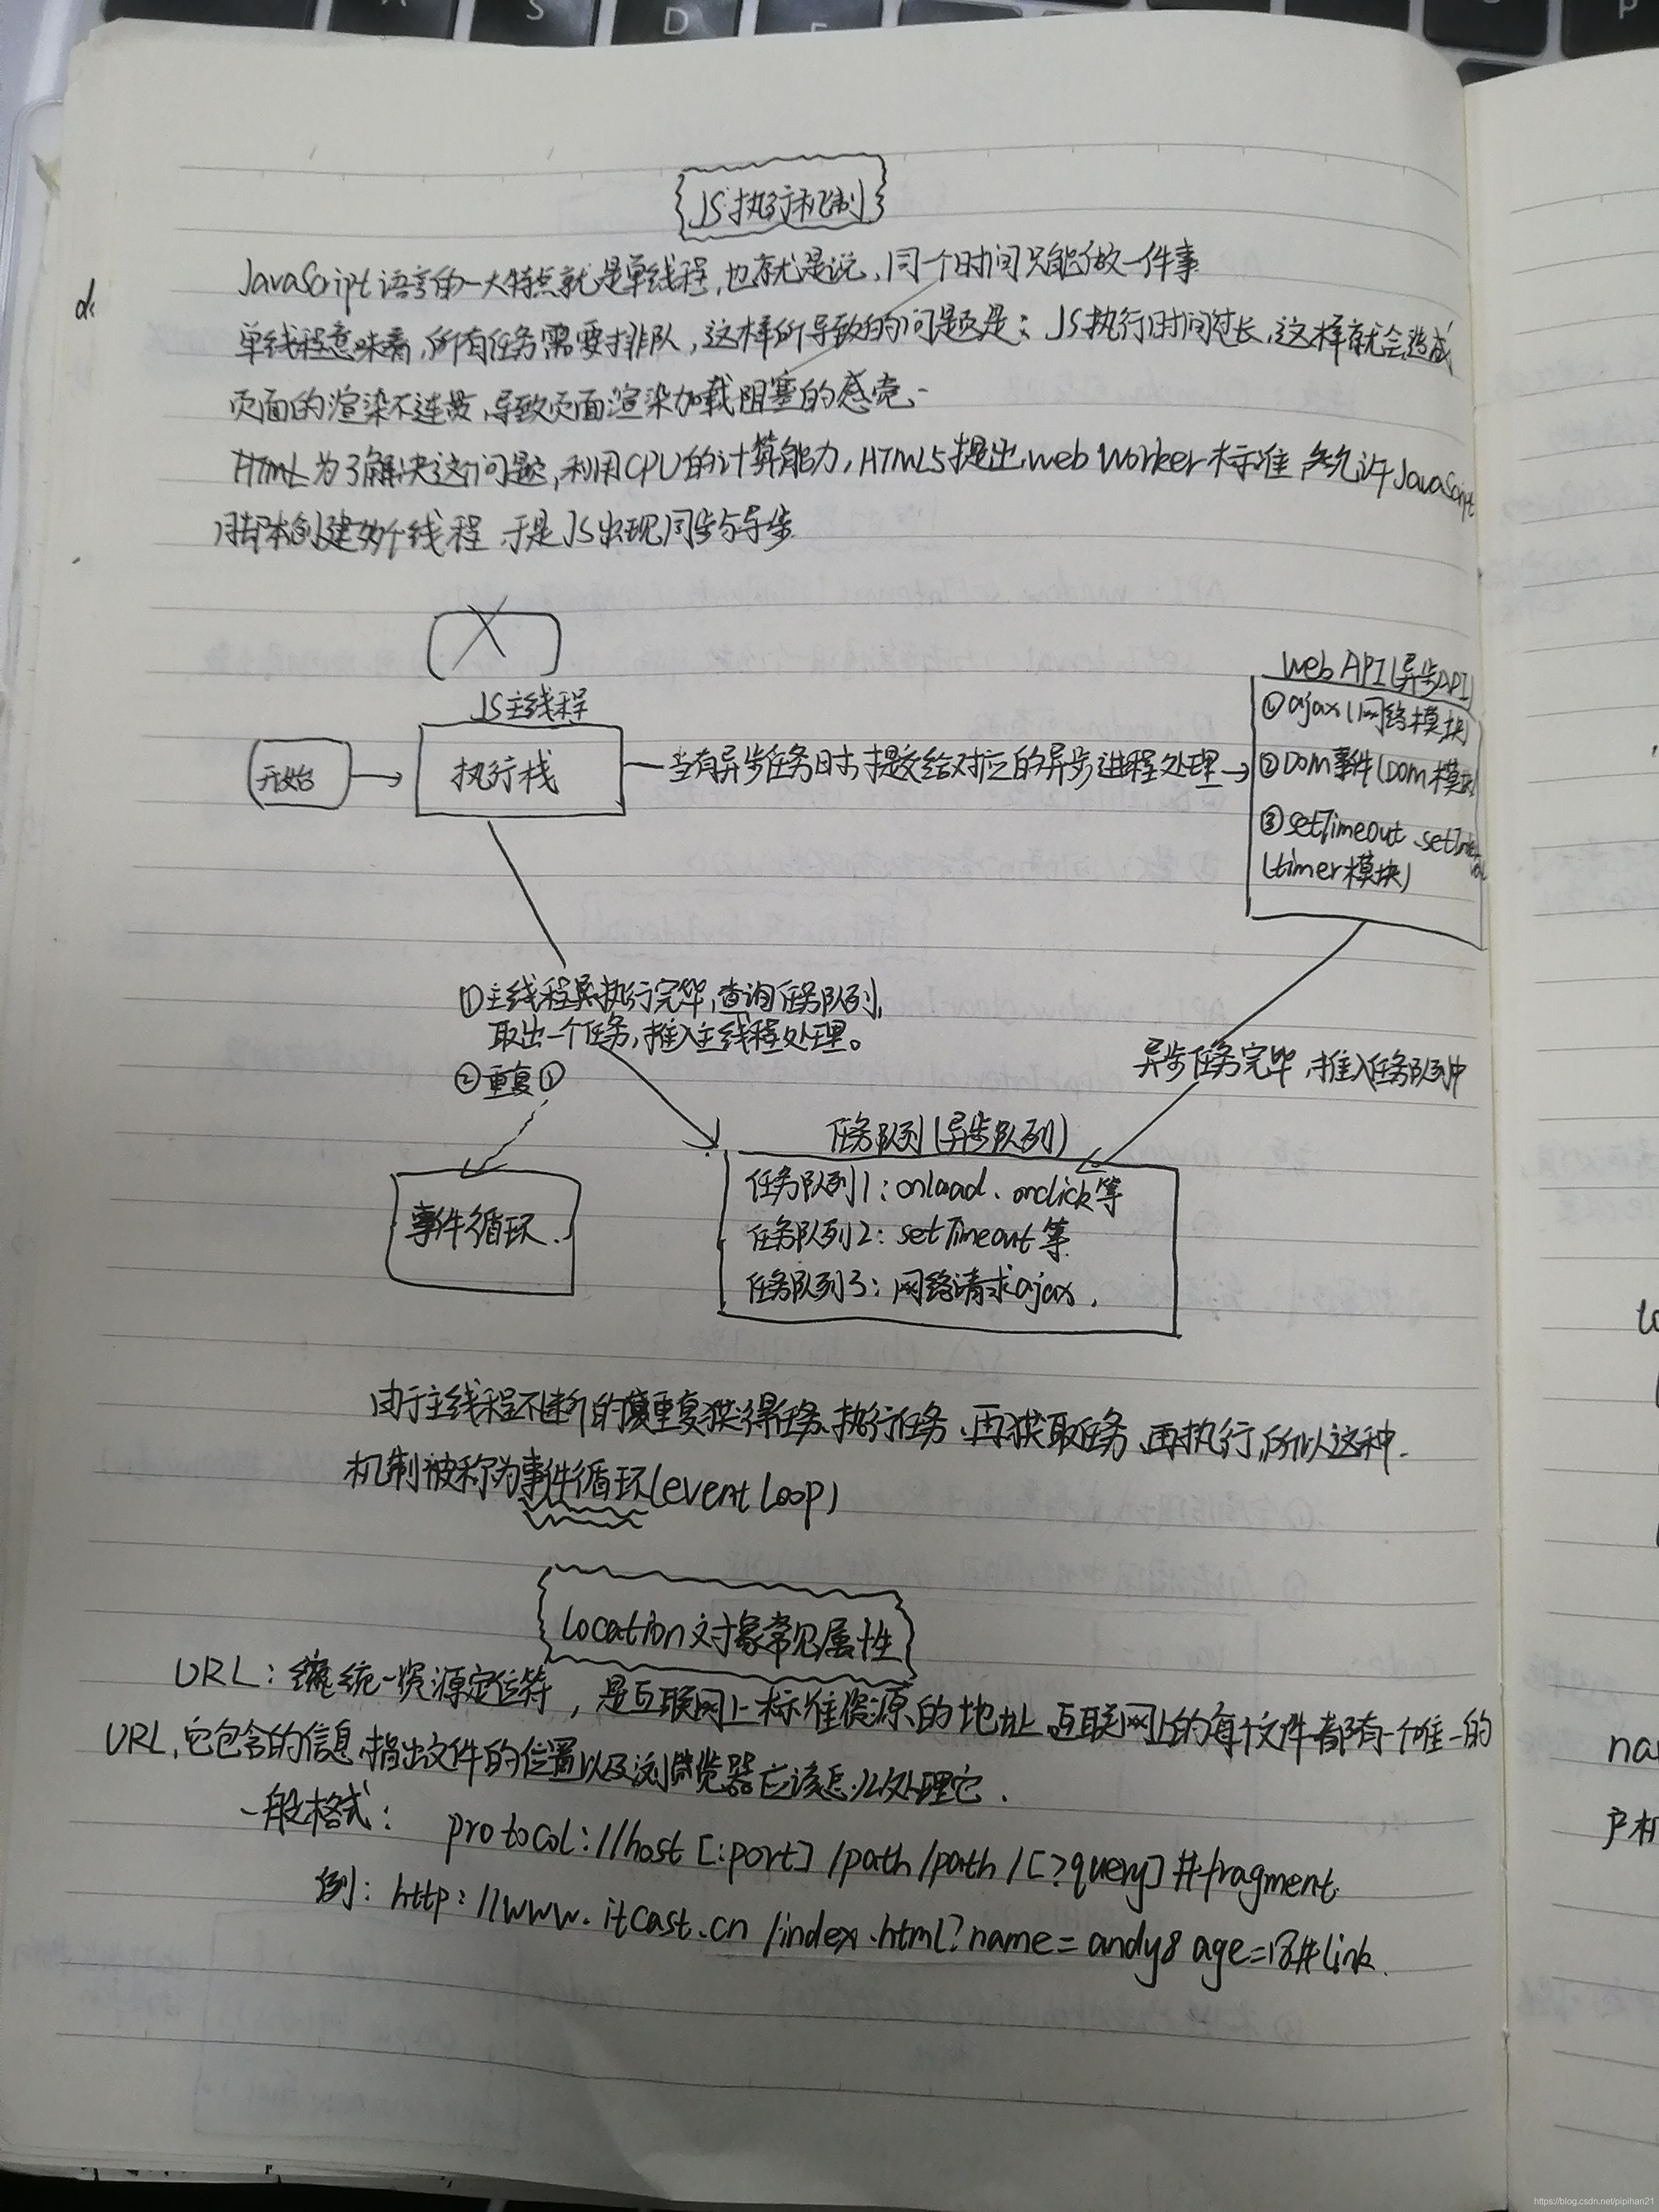 JS执行机制
JavaScript语言的一大特点就是单线程,也就是说,同一个时间只能做一件事
单线程意味着,所有任务需要排队,这样所导致的问题是:JS执行时间过长,这样就会造成
页面的渲染不连贯,导致页面渲染加载阻塞的感觉、
为了解决这个问题,利用CPU的计算能力,HTML5提出web Worker标准,允许JavaScript
脚本创建多个线程,于是JS出现同步与异步
JS主线程
开始
执行栈
当有异步任务时,提交给对应的异步进程处理
web API(异步API)
①ajax(网络模块)
②DOM事件(DOM模块
③setTimeout、setInterval
(timer模块)
①主线程执行完毕,查询任务队列,
取出一个任务,推入主线程处理。
②重复①
异步任务完毕,推入任务队列中
事件循环.
任务队列(异步队列)
任务队列1:onload、onclick等
任务队列2:setTimeout等
任务队列3:网络请求ajax.
由于主线程不断的重复获得任务、执行任务、再获取任务、再执行,所以这种
机制被称为事件循环(event Loop)
Location对象常见属性
URL:统一资源定位符,是互联网上标准资源的地址,互联网上的每个文件都有一个唯一的
URL,它包含的信息指出文件的位置以及浏览器应该怎么处理它.
一般格式: protocol://host[:port]/path/path/[?query]#fragment
例:http://www.itcast.cn/index.html?name=andy&age=18#link
https://blog.csdn.net/pipihan21